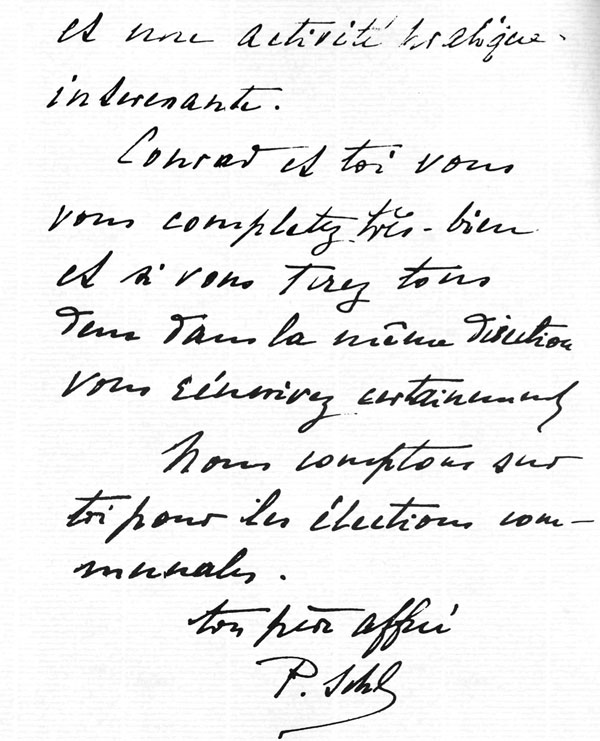 et une activité pratique
interesante.
Conrad et toi vous
vous completez très-bien
et si vous tirez tous
deux dans la même direction
vous réussirez certainement
Nous comptons sur
toi pour les élections com-
munales.
ton père affné
P.